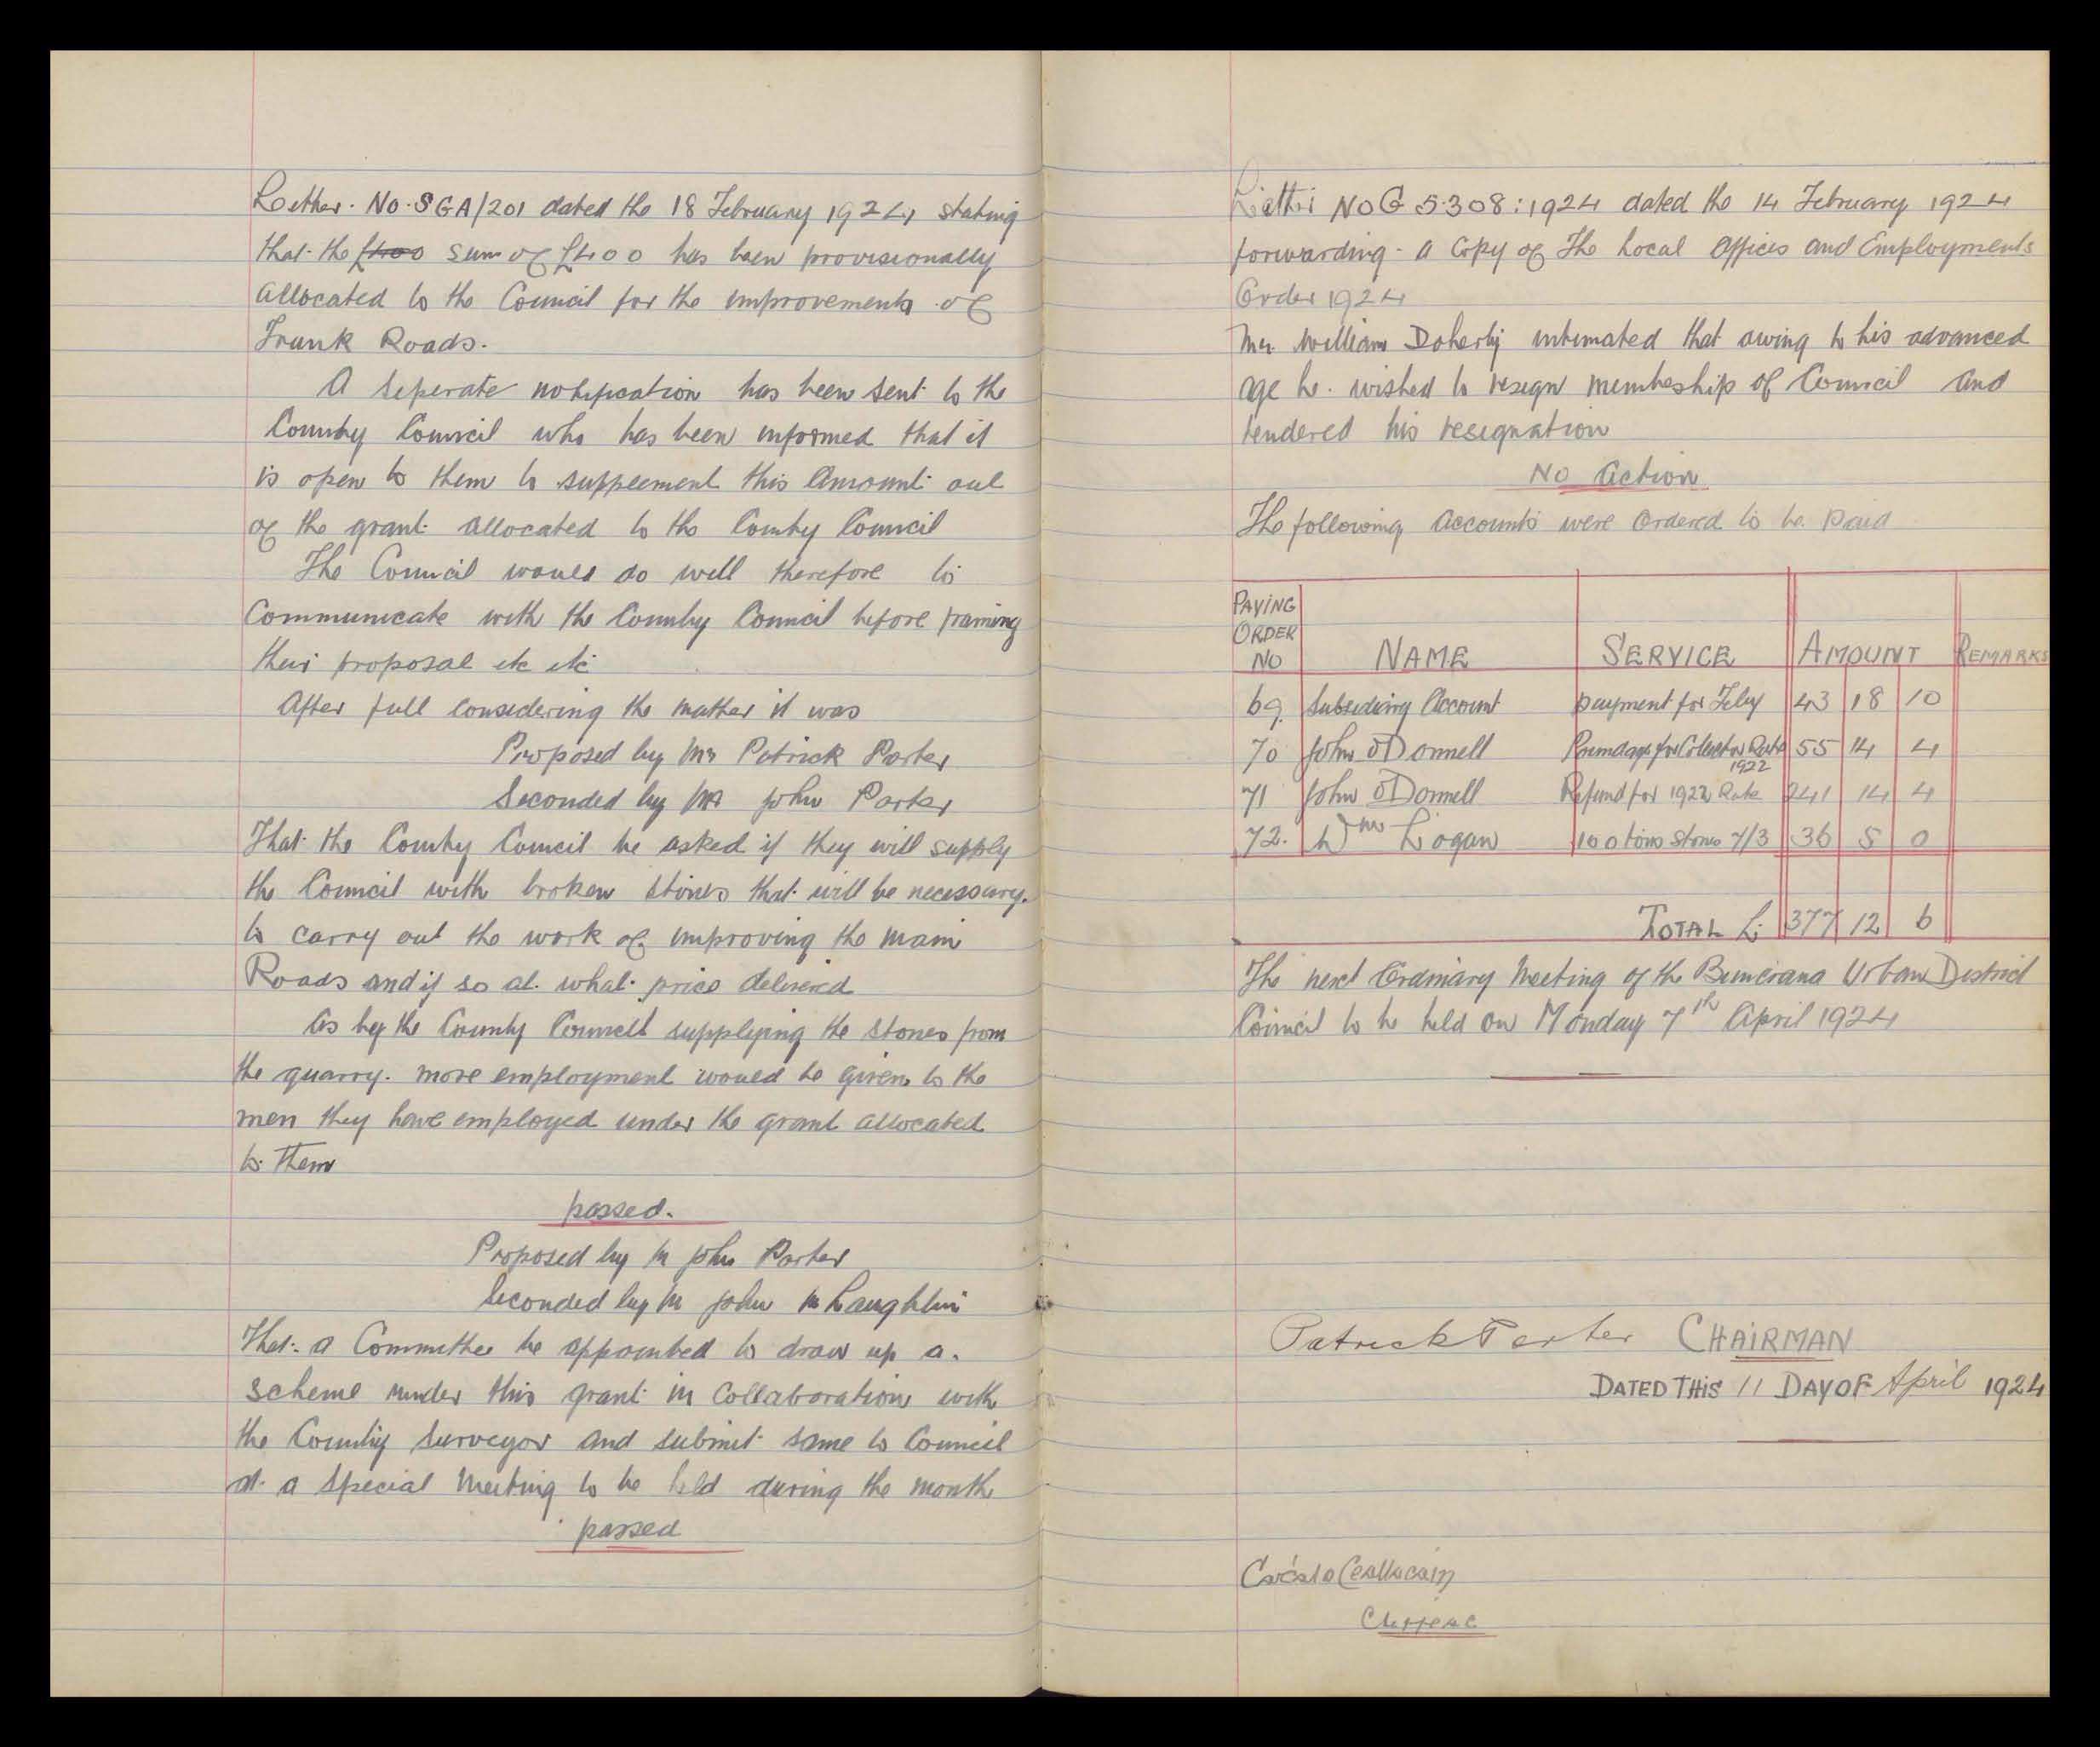 Letter. No. SGA/201 dated the 18 February 1924, stating
that the £400 sum of £400 has been provisionally
allocated to the Council for the improvements of
Trunk Roads.
A seperate notification has been sent to the
County Council who has been informed that it
is open to them to suppement this Amount out
of the grant allocated to the County Council
The Council would do well therefore to
Communicate with the County Council before framing
their proposal etc etc
After full considering the matter it was
Proposed by Mr Patrick Porter
Seconded by Mr John Porter
That the County Council be asked if they will supply
the Council with broken stones that will be necessary.
to carry out the work of improving the main
Roads and if so at what price delivered
As by the County Council supplying the stones from
the quarry. more employment would be given to the
men they have employed under the grant allocated
to them
passed.
Proposed by M John Porter
Seconded by M John McLaughlin
That a Committee be appointed to draw up a
scheme under this grant in Collaboration with
the County Surveyor and submit same to Council
at a Special Meeting to be held during the month
passed
Letter No G 5308:1924 dated the 14 February 1924
forwarding a Copy of The Local Offices and Employments
Order 1924
Mr. William Doherty intimated that owing to his advanced
age he. wished to resign membeship of Council and
tendered his resignation
No Action
The following Accounts were Ordered to be Paid
PAYING ORDER NO NAME SERVICE AMOUNT REMARKS
69. Subsidiary Account payment for Feby 43 18 10
70 John O'Donnell Poundage for Collector Rate 1922 55 14 4
71 John O'Donnell Refund for 1922 Rate 241 14 4
72. Wm Logan 100 tons stones 7/3 36 5 0
TOTAL £. 377 12 6
The next Ordinary Meeting of the Buncrana Urban District
Council to be held on Monday 7th April 1924
Patrick Porter CHAIRMAN
DATED THIS 11 DAY OF April 1924